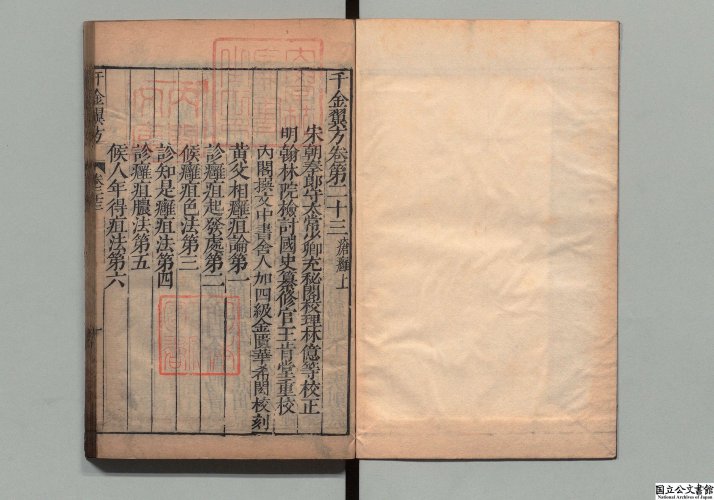 千金翼方卷第二十三 瘡癰上
宋朝奉郎守太常少卿充秘閣校理林億等校正
明翰林院檢討國史纂修官王肯堂重校
內閣撰文中書舍人加四級金匱華希閎校刻
黃父相癰疽論第一
診癰疽起發處第二
候癰疽色法第三
診知是癰疽法第四
診癰疽膿法第五
候人年得疽法第六
千金翼方 卷二十三
国立公文書館
National Archives of Japan